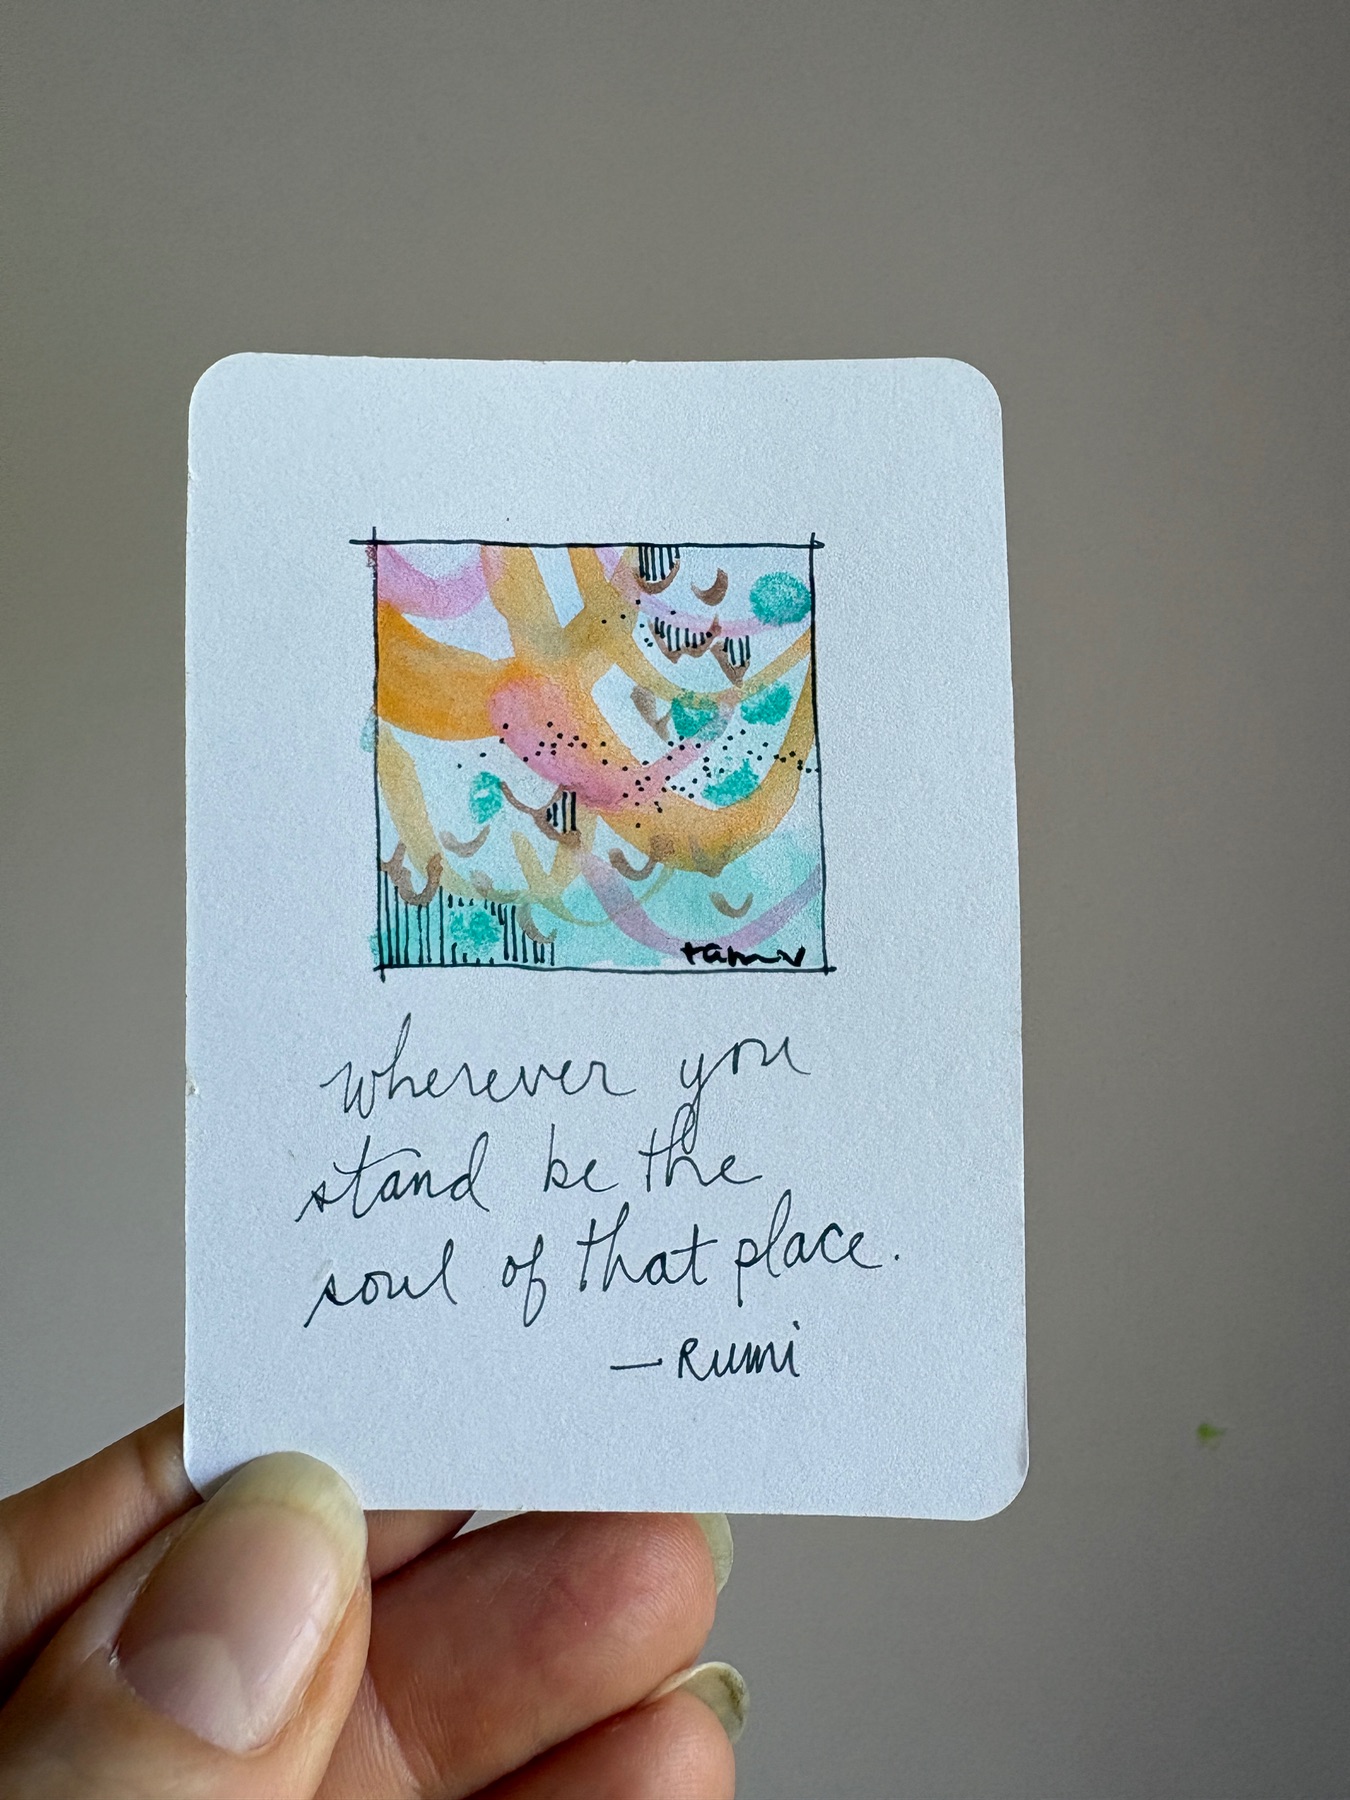 tamv
wherever you
stand be the
soul of that place.
—Rumi